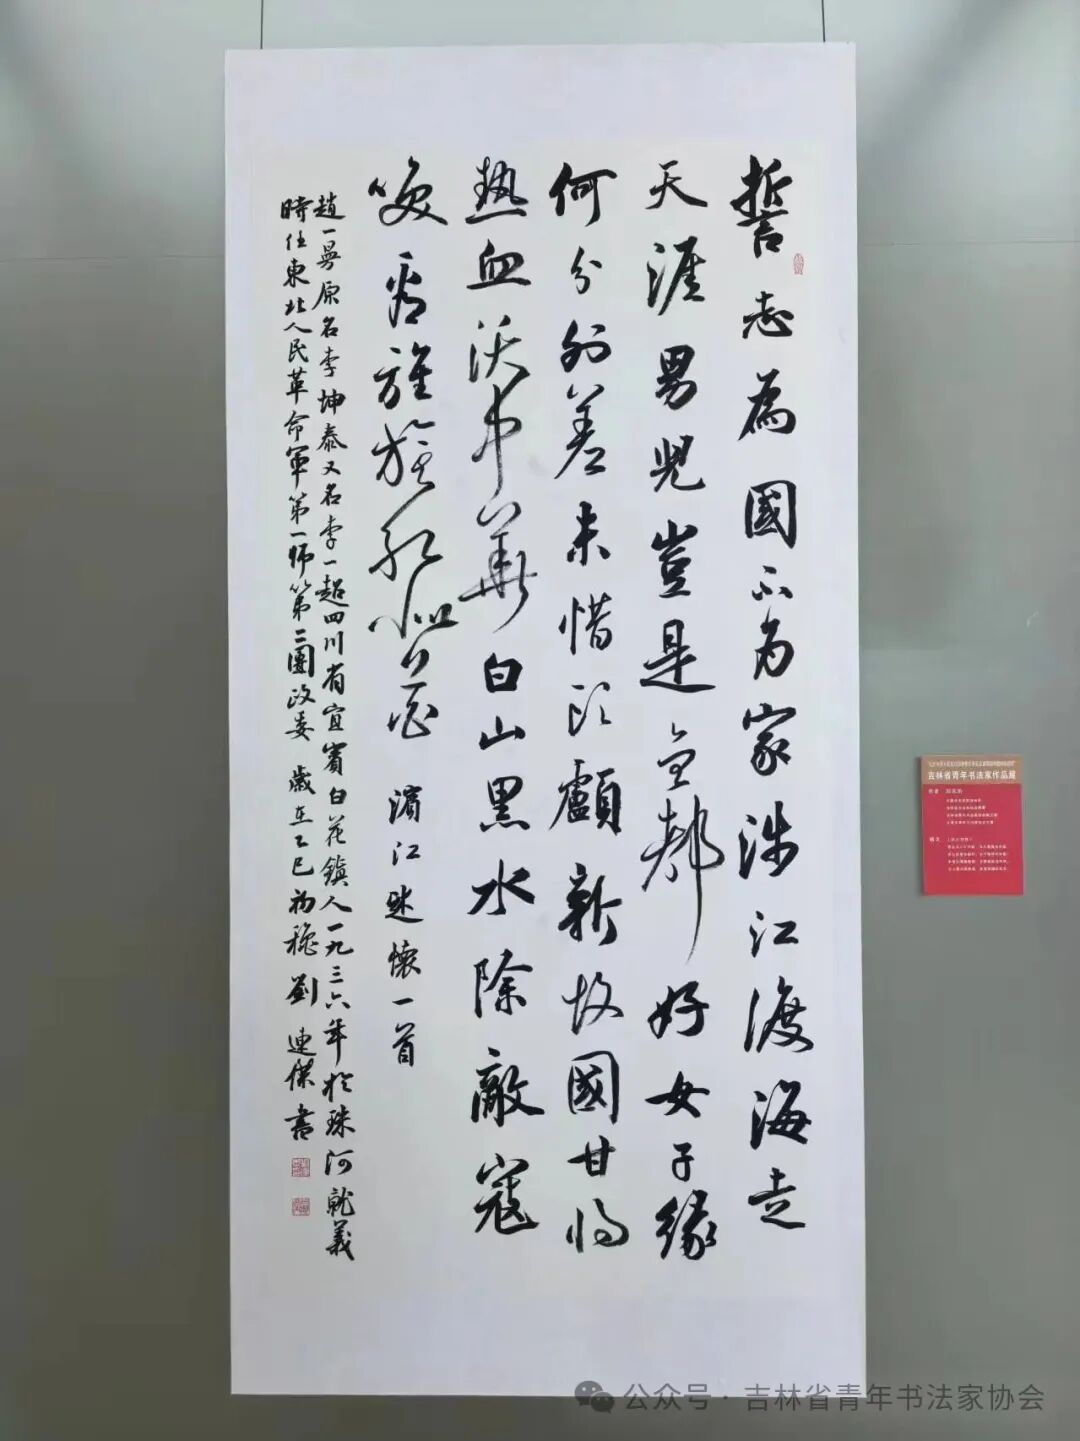 誓志為國不為家涉江渡海走
天涯男兒豈是全都好女子緣
何分外差未惜頭顱新故國甘將
熱血沃中華白山黑水除敵寇
咲看旌旗紅似花 濱江述懷一首
趙一曼原名李坤泰又名李一超四川省宜賓白花鎮人一九三六年於珠河就義
時任東北人民革命軍第一師第二團政委 歲在乙巳初秋劉連傑書
吉林省青年书法家作品展
公众号·吉林省青年书法家协会